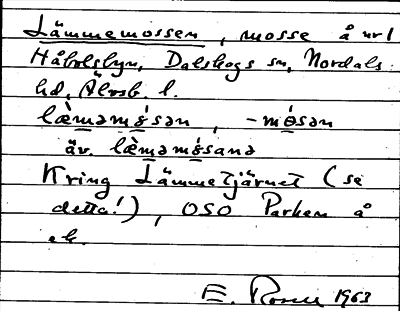 Lämmemossen, mosse å nr 1
Håbolsbyn, Dalskogs sn, Nordals
hd, Älvsb. l.
lὲməmǿsən, -mǿsən
äv. lὲməmǿsanə
Kring Lämmetjärnet (se
detta!), OSO Parken å
ek.
E. Rosell 1963